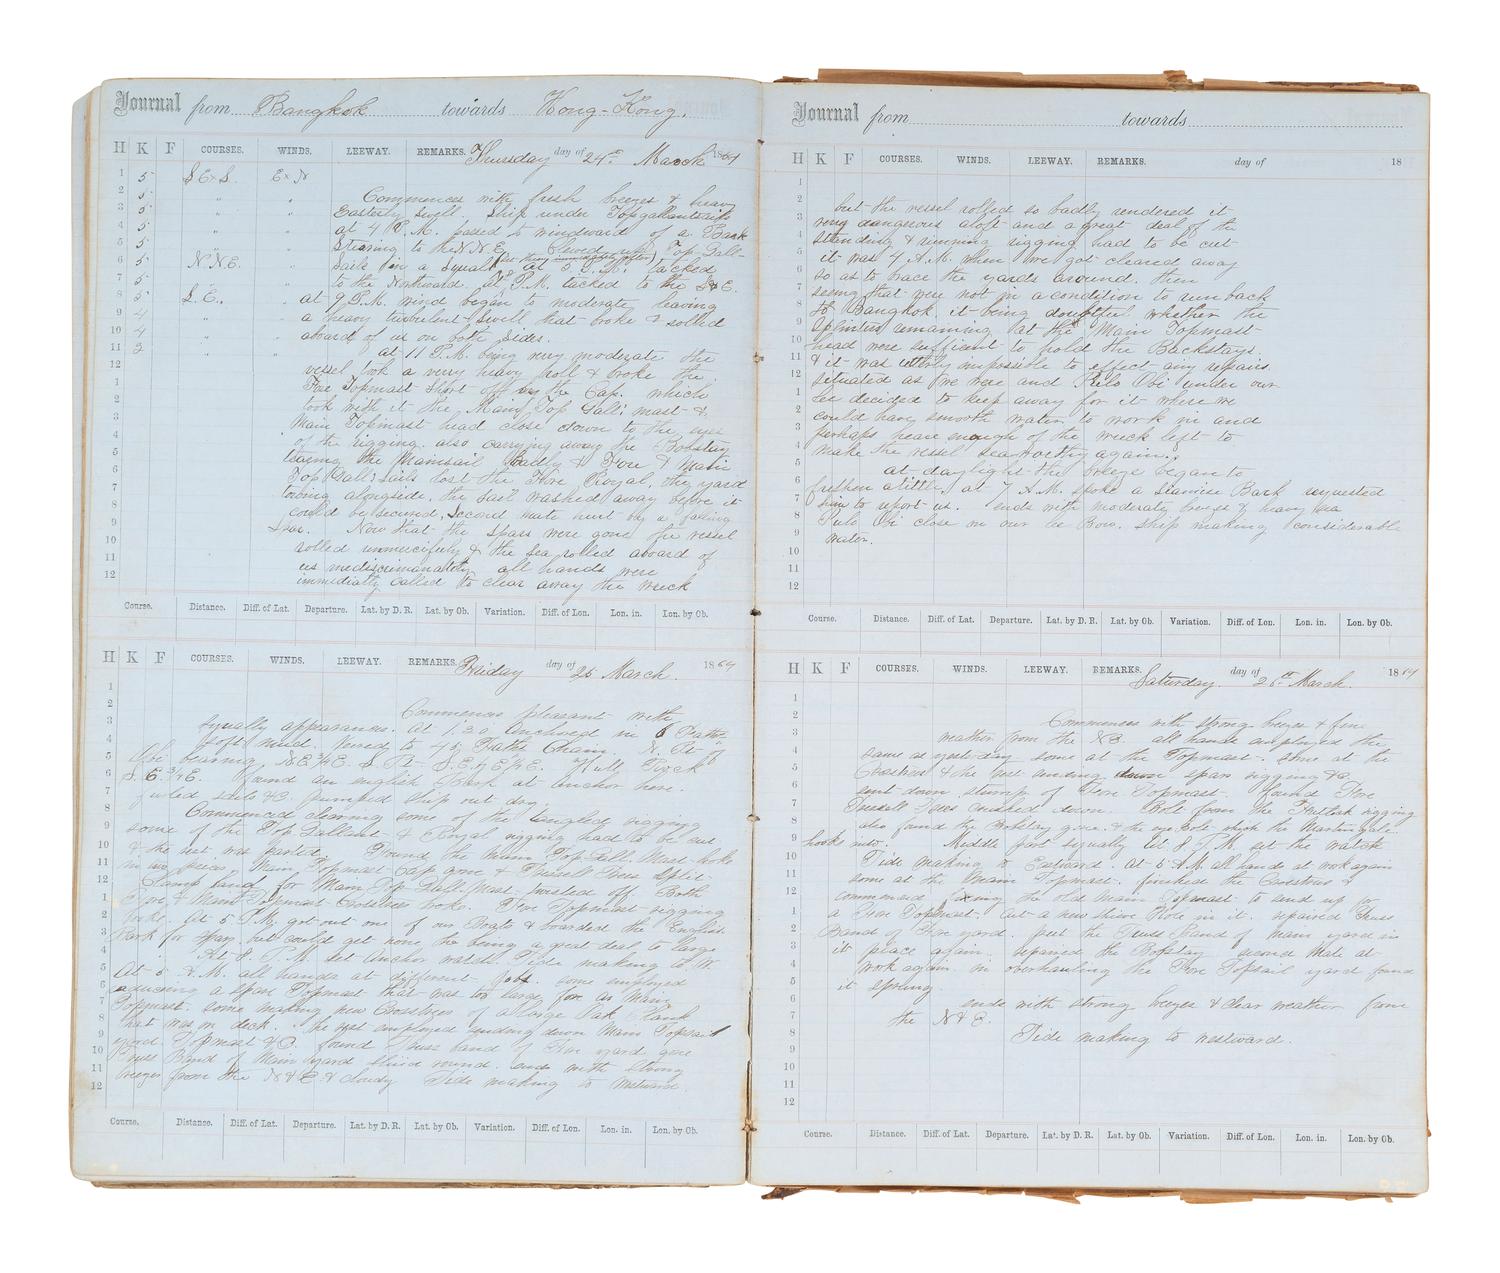 Journal from Bangkok towards Hong-Kong.
H K F COURSES. WINDS. LEEWAY. REMARKS. Thursday day of 24th March 1864
1 5 S E x S. E x N
2 5 " " Commences with fresh breezes & heavy
3 5 " " Easterly Swell. Ship under Topgallantsails
4 5 " " at 4 P.M. passed to windward of a Bark
5 5 " " Stearing to the N.N.E. Top Gall-
6 5 N.N.E. " Sails in a Squall at 5 P.M. tacked
7 5 " to the Northward. at P.M. tacked to the S & E.
8 5 S. E. " at 9 P.M. wind began to moderate leaving
9 4 " " a heavy turbulent Swell that broke & rolled
10 4 " " aboard of us on both sides.
11 2 " " at 11 P.M. being very moderate the
12 vessel took a very heavy roll & broke the
1 Fore Topmast short off by the Cap. which
2 took with it the Main Top Gall: mast &
3 Main Topmast head close down to the eyes
4 of the rigging. also carrying away the Bobstay
5 tearing the Mainsail Badly & Fore & Main
6 Top Gall: Sails lost the Fore Royal, the yard
7 towing alongside, the sail washed away before it
8 could be secured, Second mate hurt by a falling
9 Spar. Now that the spars were gone the vessel
10 rolled unmercifully & the sea rolled aboard of
11 us all hands were
12 called to clear away the wreck
Course. Distance. Diff. of Lat. Departure. Lat. by D. R. Lat. by Ob. Variation. Diff. of Lon. Lon. in. Lon. by Ob.
H K F COURSES. WINDS. LEEWAY. REMARKS. Friday day of 25 March. 1864
1
2 Commences pleasant with
3 squally appearances. At 1.30 anchored in 6 Faths
4 soft mud. veered to 45 Faths Chain. N. Pt of
5 Obi bearing, N.E.¾E. S Pt S.E. Rock
6 S.E. ¾ E. Found an english Bark at anchor here.
7 furled sails &c. pumped ship out dry.
8 Commenced clearing some of the tangled rigging
9 some of the Top Gallant & Royal rigging had to be cut
10 & the rest was parted. Found the Main Top Gall: Mast broke
11 in Main Topmast Cap gone & Trussell Trees Split
12 Clamp for Main Top Gall: Mast twisted off Both
1 Fore & Main Topmast Crosstrees broke. Fore Topmast rigging
2 broke. At 5 P.M. got out one of our Boats & boarded the English
3 Bark for spars, but could get none, he being a great deal to large
4 At 8. P.M. set anchor watch. Tide making to W.
5 At 5. A.M. all hands at different Jobs. some employed
6 reducing a spare Topmast that was too large for as Main
7 Topmast. some making new Crosstrees of a large Oak Plank
8 that was on deck. The rest employed sending down Main Topsail
9 yard. Topmast &c. found Truss band of Fore yard gone
10 Truss Band of Main yard round. ends with strong
11 breezes from the N & E. & cloudy Tide making to Westward.
12
Course. Distance. Diff. of Lat. Departure. Lat. by D. R. Lat. by Ob. Variation. Diff. of Lon. Lon. in. Lon. by Ob.
Journal from towards
H K F COURSES. WINDS. LEEWAY. REMARKS. day of 18
1
2 but the vessel rolled so badly rendered it
3 very dangerous aloft and a great deal of the
4 standing & running rigging had to be cut
5 it was 4 A.M. when we got cleared away
6 so as to brace the yards around. then
7 seeing that were not in a condition to run back
8 to Bangkok. it being doubtful whether the
9 remaining at the Main Topmast-
10 head were sufficent to hold the Backstays.
11 & it was utterly impossible to effect any repairs
12 situated as we were and Pulo Obi under our
1 lee decided to keep away for it where we
2 could have smooth water to work in and
3 perhaps have enough of the wreck left to
4 make the vessel seaworthy again.
5 at daylight the breeze began to
6 freshen a little, at 7 A.M. spoke a Siamese Bark requested
7 him to report us. ends with moderate breeze & heavy sea
8 Pulo Obi close in our lee Bow. Ship making considerable
9 water.
10
11
12
Course. Distance. Diff. of Lat. Departure. Lat. by D. R. Lat. by Ob. Variation. Diff. of Lon. Lon. in. Lon. by Ob.
H K F COURSES. WINDS. LEEWAY. REMARKS. Saturday. day of 26th March. 1864
1
2 Commences with strong breezes & fine
3 weather from the N.E. all hands employed the
4 same as yesterday some at the Topmast. some at the
5 Crosstrees & the rest sending down spars rigging &c.
6 sent down stump of Fore Topmast. found Fore
7 Trussell Trees crushed down. Bolt from the Futtock rigging
8 also found the Bobstay gone. & the eye bolt which the Martingale
9 hook into. Middle part squally at 8 P.M. set the watch
10 Tide making to Eastward. At 5 A.M. all hands at work again
11 some at the Main Topmast. finished the Crosstrees &
12 commenced the old Main Topmast to send up for
1 a Fore Topmast. Cut a new shive Hole in it. repaired Truss
2 Band of Fore yard. put the Truss Band of Main yard in
3 it place again. repaired the Bobstay second Mate at
4 work again. in overhauling the Fore Topsail yard found
5 it sprung.
6 ends with strong breezes & clear weather from
7 the N & E.
8 Tide making to westward.
9
10
11
12
Course. Distance. Diff. of Lat. Departure. Lat. by D. R. Lat. by Ob. Variation. Diff. of Lon. Lon. in. Lon. by Ob.